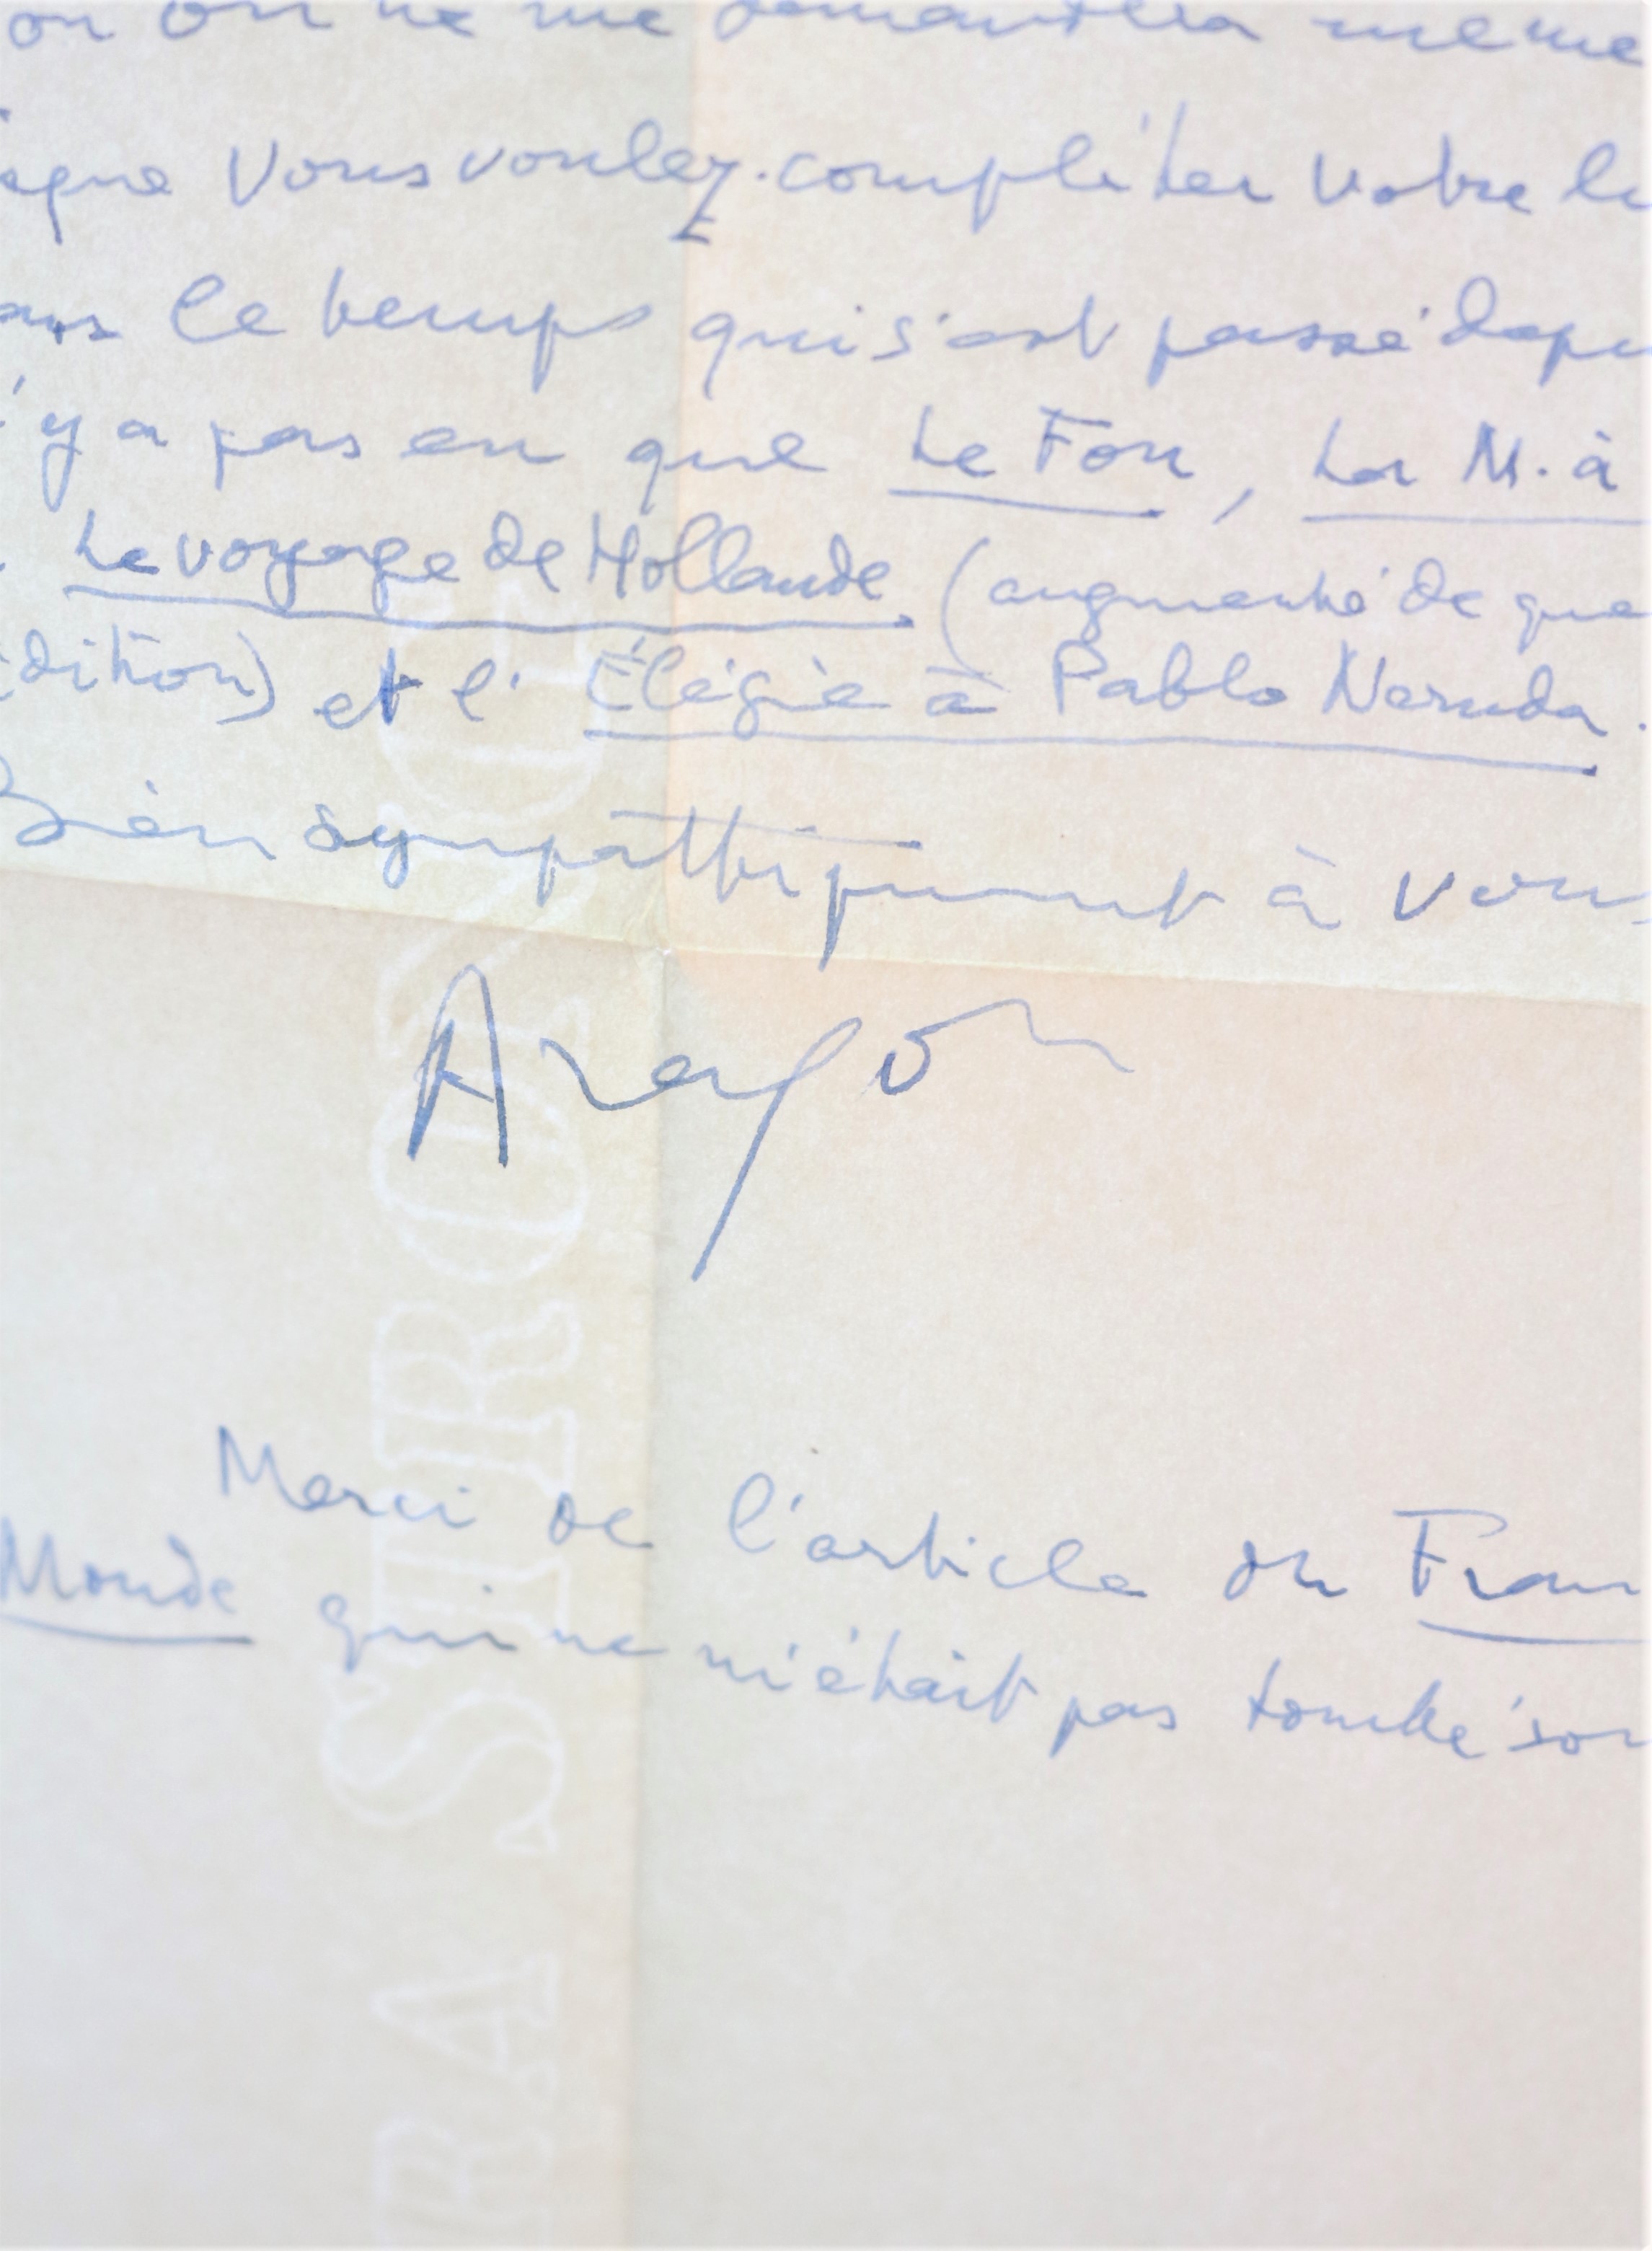 on ne me demandera même
vous voulez compléter votre
le temps qui s'est passé
y a pas eu que Le Fou, La M. à
Le voyage de Hollande (augmenté de
et l'Élégie à Pablo Neruda.
Bien sympathiquement à vous
Aragon
Merci de l'article du
Monde qui ne m'était pas tombé
EXTRA STRONG